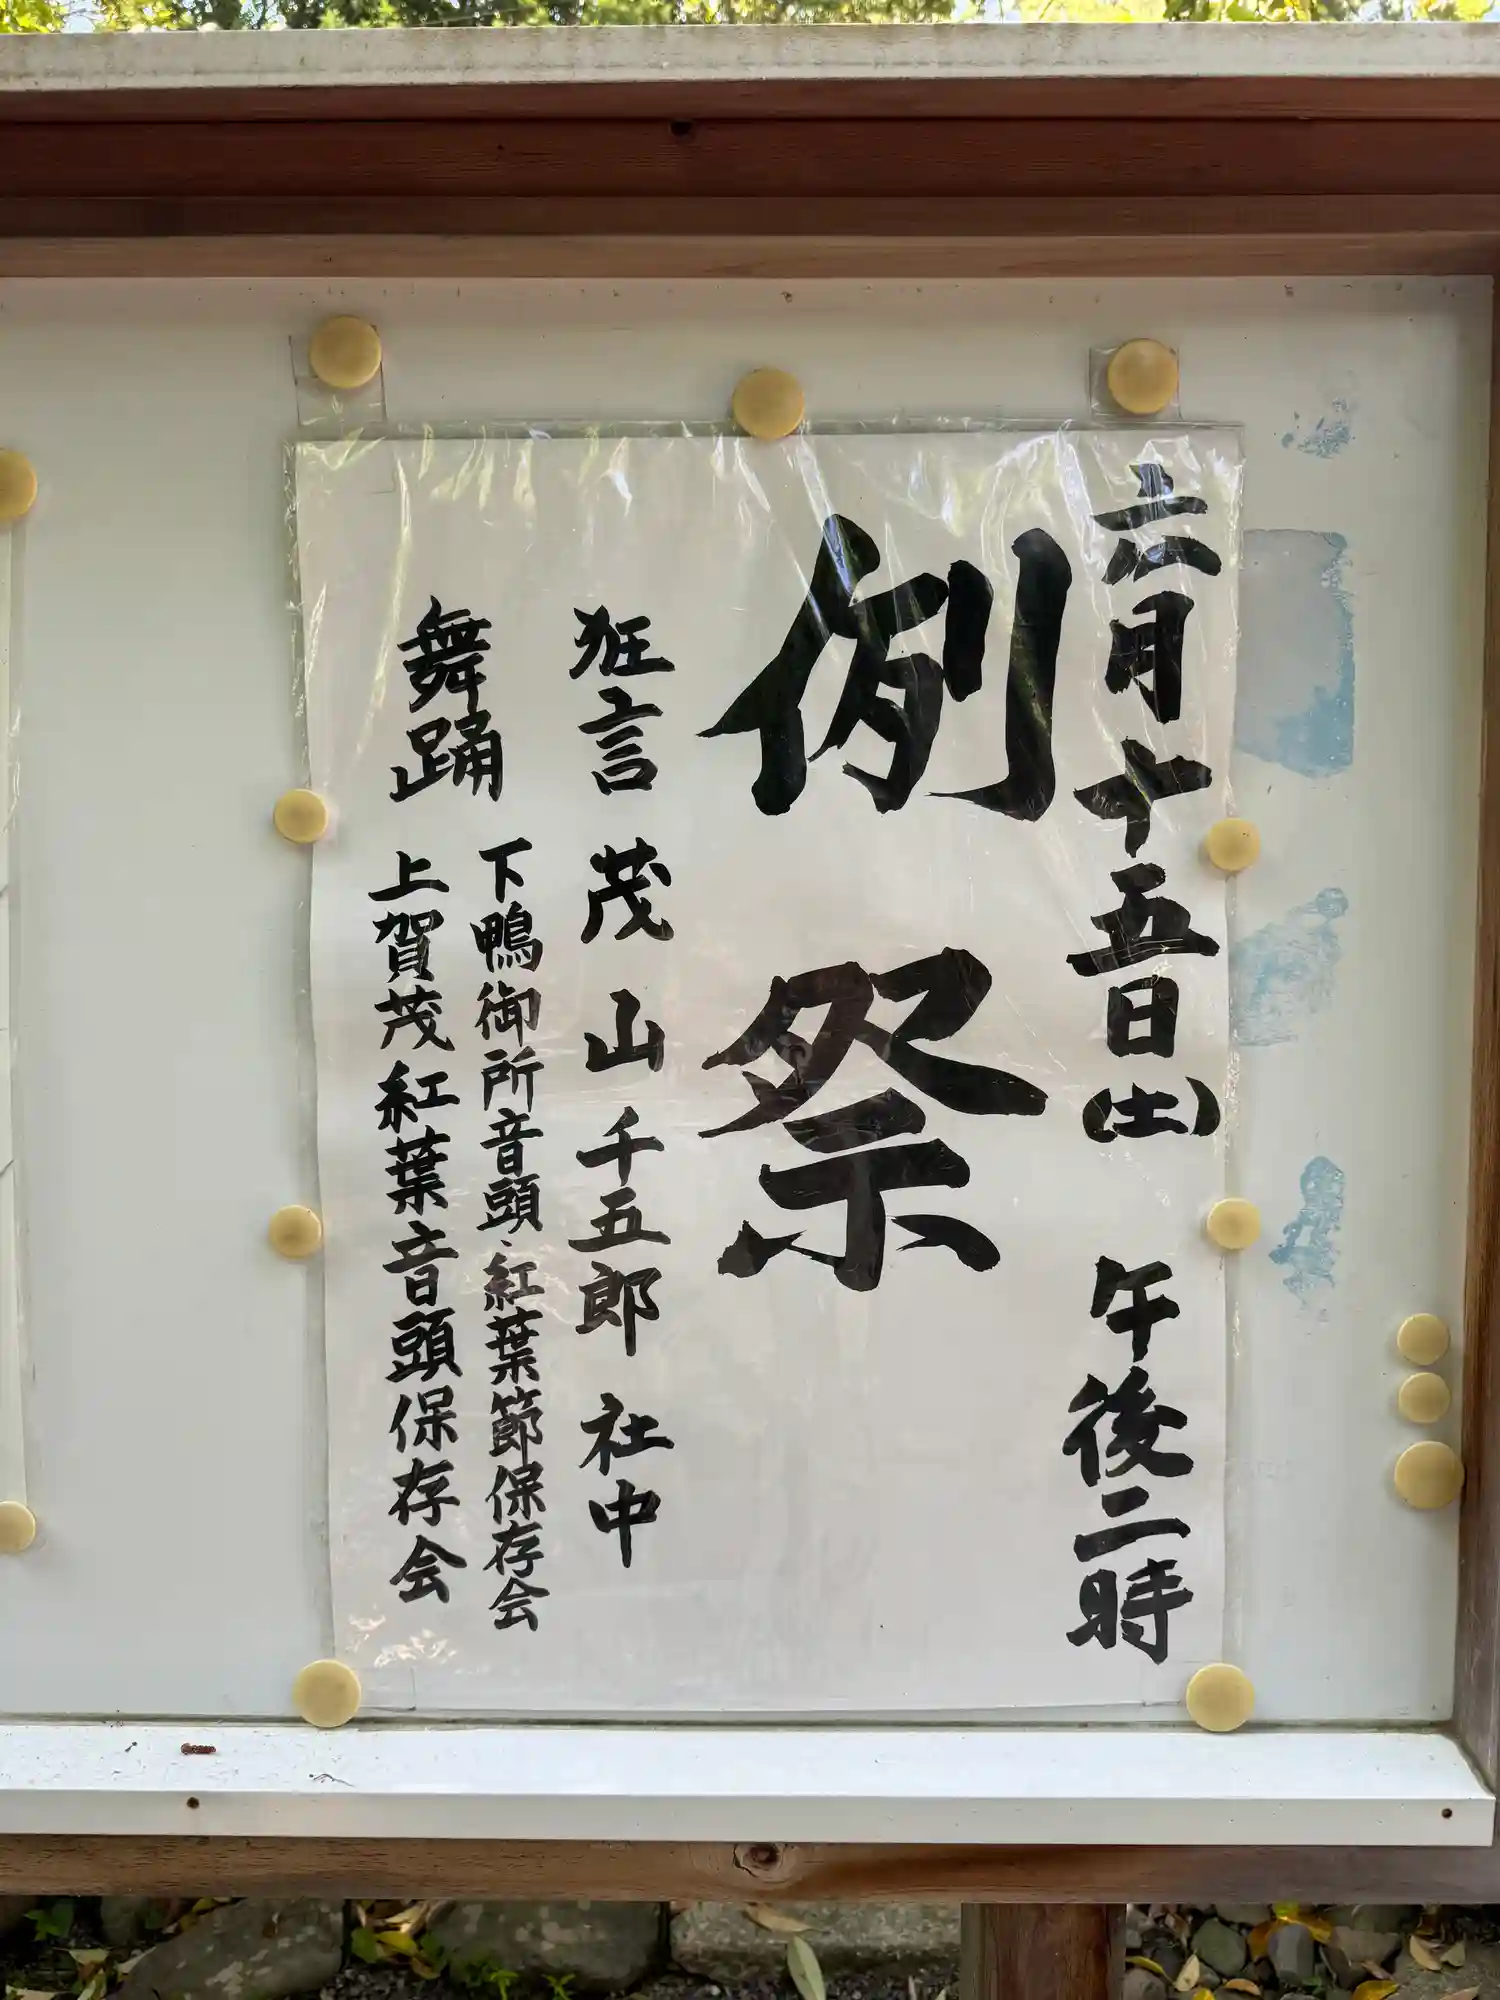 六月十五日(土) 午後二時
例祭
狂言 茂山千五郎社中
舞踊
下鴨御所音頭・紅葉節保存会
上賀茂紅葉音頭保存会